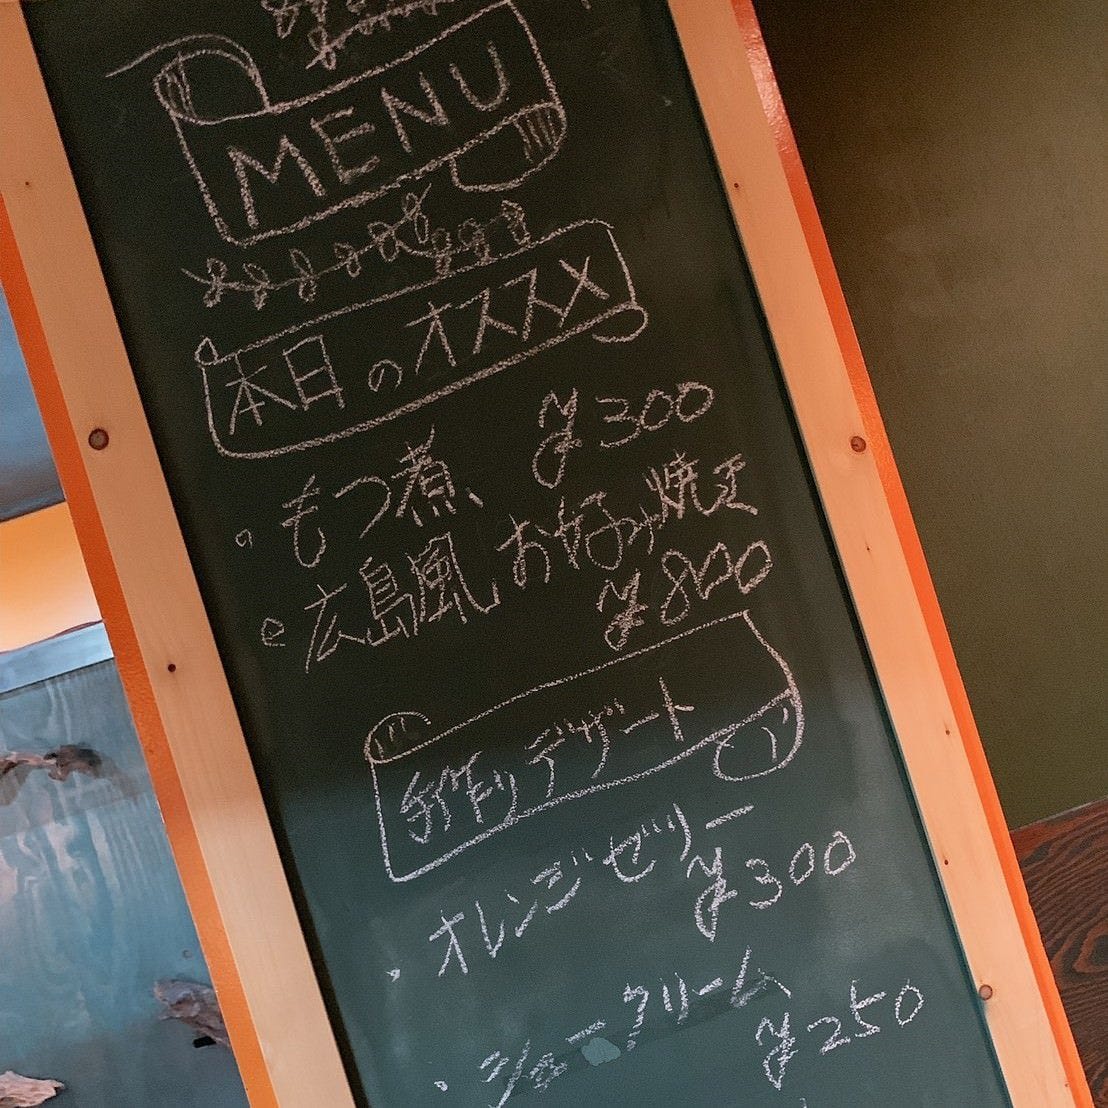 MENU
本日のオススメ
・もつ煮 ¥300
・広島風お好み焼き
¥800
手作りデザート
・オレンジゼリー
¥300
・シュークリーム
¥250